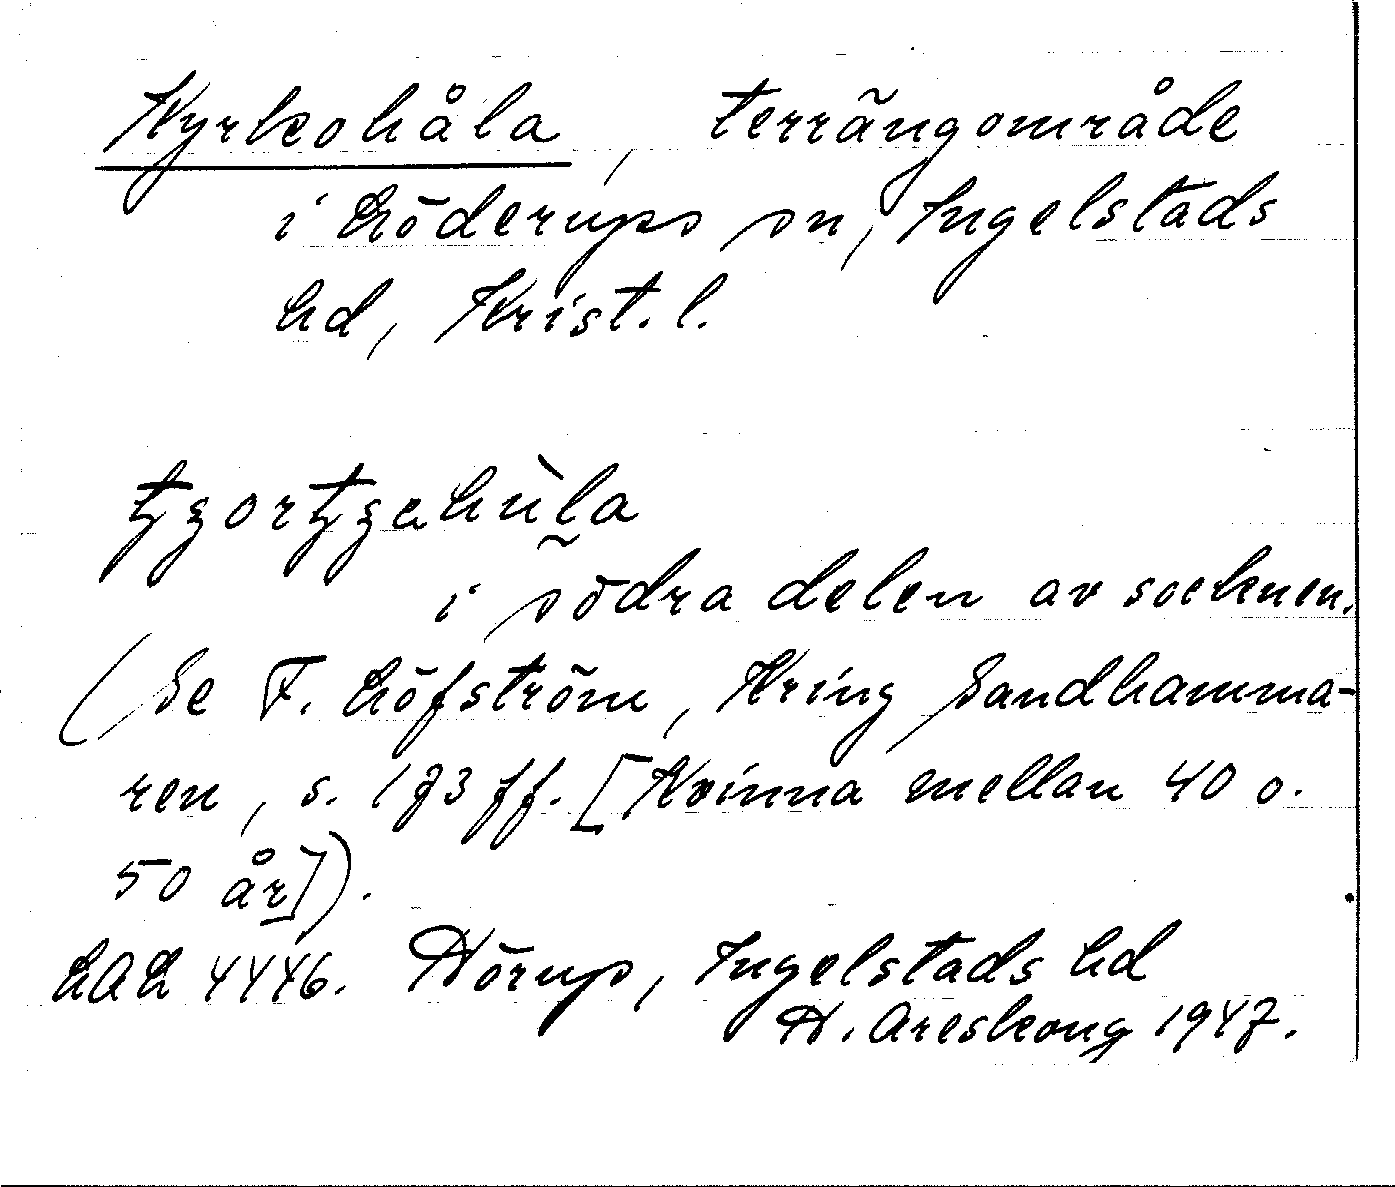 Kyrkohåla, terrängområde
i Löderups sn, Ingelstads
hd, Krist. l.
i södra delen av socknen.
(Se F. Löfström, Kring Sandhamma-
ren, s. 173 ff. [Kvinna mellan 40 o.
50 år]).
LAL 4446. Hörup, Ingelstads hd
H. Areskoug 1947.